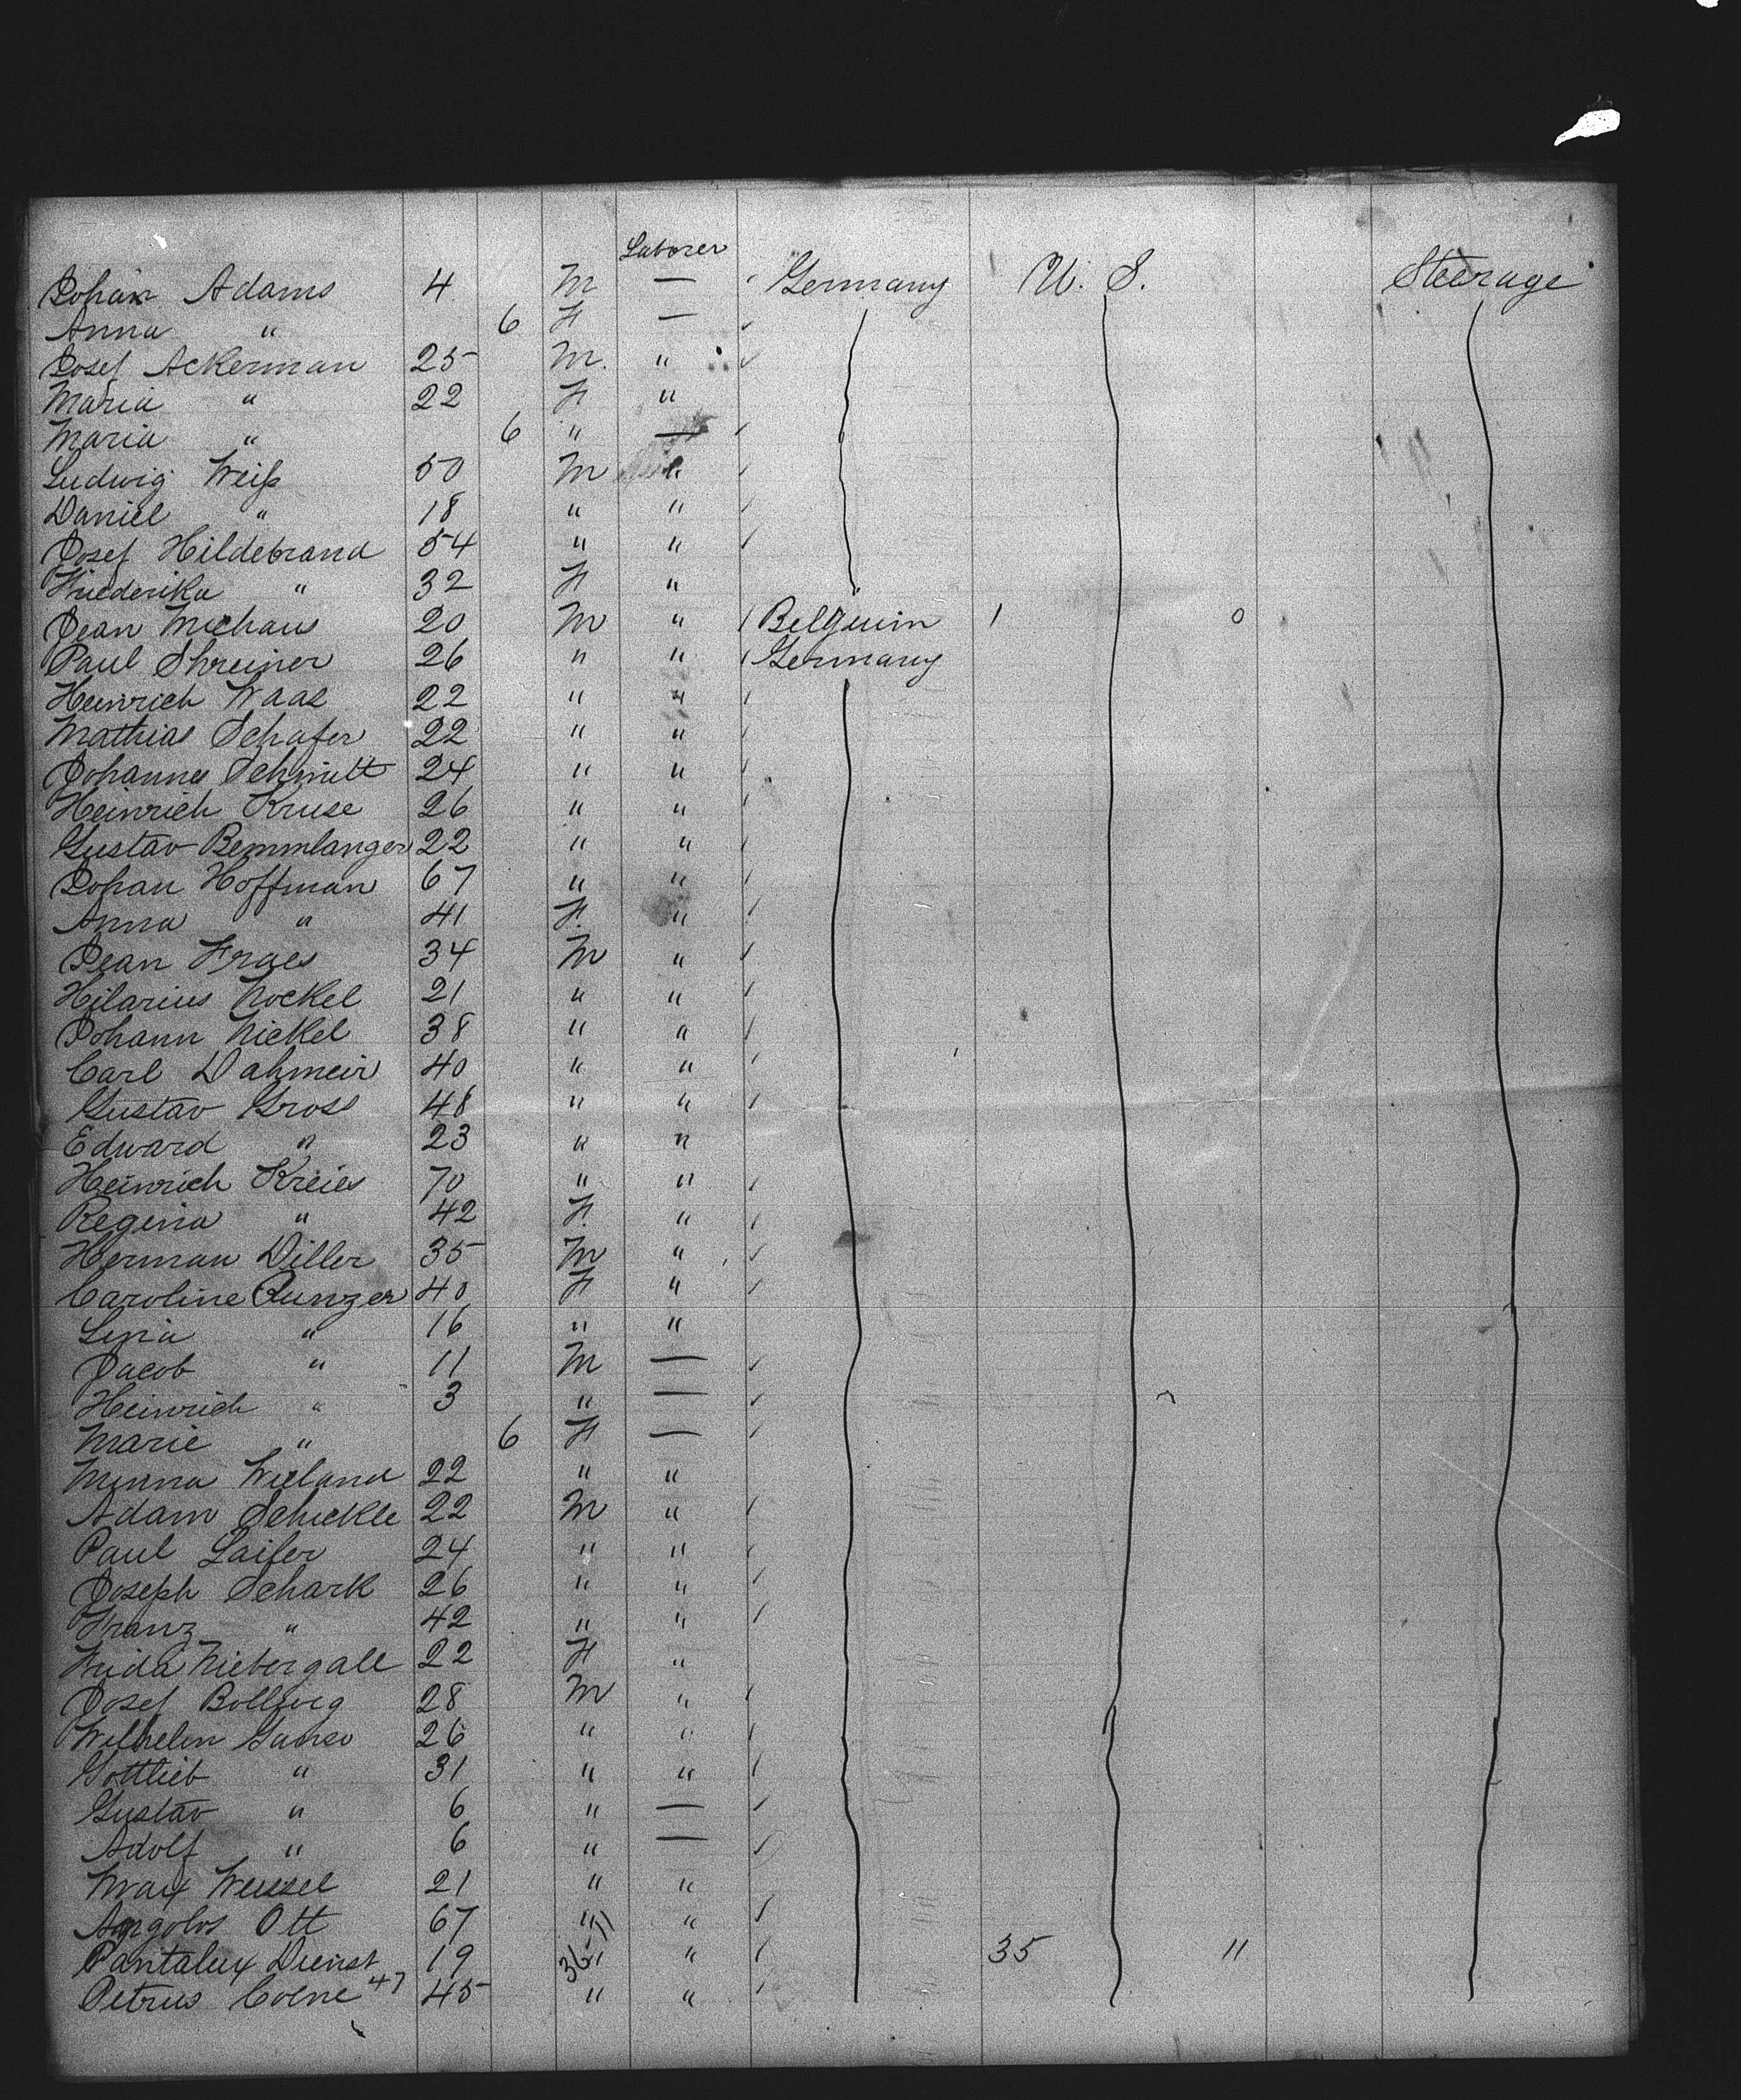 Laborer
Johan Adams 4 M — Germany U. S. Steerage
Anna " 6 F —
Josef Ackerman 25 M. "
Maria " 22 F "
Maria " 6 " —
Ludwig Weiß 50 M "
Daniel " 18 " "
Josef Hildebrand 54 " "
Friederika " 32 F "
Jean Michaus 20 M " Belguim 1 0
Paul Shreiner 26 " " Germany
Heinrich Waas 22 " "
Mathias Schafer 22 " "
Johannes Schmitt 24 " "
Heinrich Kruse 26 " "
Gustav Bemmlanger 22 " "
Johan Hoffman 67 " "
Anna " 41 F. "
Jean Fraes 34 M "
Hilarius Nockel 21 " "
Johann Nickel 38 " "
Carl Dahmeir 40 " "
Gustav Gross 48 " "
Edward " 23 " "
Heinrich Kreies 70 " "
Regina " 42 F. "
Herman Diller 35 M "
Caroline Runzer 40 F "
Lena " 16 " "
Jacob " 11 M —
Heinrich " 3 " —
Marie " 6 F —
Minna Wieland 22 " "
Adam Schickle 22 M "
Paul Laifer 24 " "
Joseph Schark 26 " "
Franz " 42 " "
Frida Niebergall 22 F "
Josef Bollweg 28 M "
Wilhelm 26 " "
Gottlieb " 31 " "
Gustav " 6 " —
Adolf " 6 " —
Max Wessel 21 " "
Ott 67 " "
Pantalux Dienst 19 36-11 " " 35 11
Petrus Coene 47 45 " "